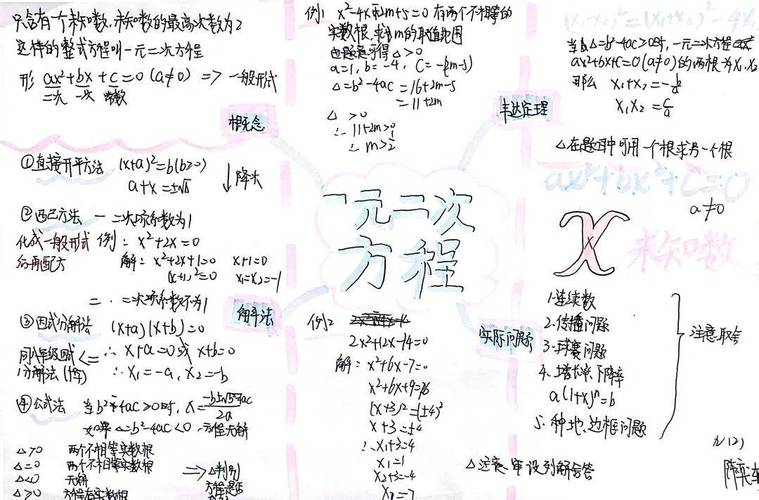 只含有一个未知数,未知数的最高次数为2
这样的整式方程叫一元二次方程
形 ax²+bx+c=0(a≠0) => 一般形式
二次 一次 常数
概念
①直接开平方法 (x+a)²=b(b>=)
a+x=±√b
↓降次
②配方法 一 二次项系数为1
化成一般形式 例: x²+2x=0
后再配方 解: x²+2x+1=0 x+1=0
(x+1)²=0 x₁=x₂=-1
二、二次项系数不为1
解法
③因式分解法 (x+a)(x+b)=0
<= ∴ x+a=0或 x+b=0
∴ x₁=-a, x₂=-b
④公式法 当b²-4ac>0时, x=-b±√b²-4ac/2a
如果 △=b²-4ac<0 方程无解
△>0 两个不相等实数根
△=0 两个不相等实数根
△<0 无解
△>0
例1 x²-4x-2m+5=0 有两个不相等的
实数根,求m的取值范围
由题意可得△>0
a=1, b=-4, C=-(m-5)
△=b²-4ac=16+2m-5
=11+2m
△>0
∴ 11+2m>0
∴ m>2
一元二次
方程
例2
2x²+12x-14=0
解: x²+6x-7=0
x²+6x+9=16
(x+3)²=(±4)²
x+3=±4
∴x+3=4
x₁=1
x₂+3=-4
x₂=7
韦达定理
(x₁-x₂)²=(x₁+x₂)²-4x
当△=b²-4ac>0时,一元二次方程
ax²+bx+C=0(a≠0)的两根为x₁,x₂
那么 x₁+x₂=-b/a
x₁x₂=c/a
△在题中可用一个根求另一个根
ax²+bx²+C=0
a≠0
X
未知数
实际问题
1.连续数
2.传播问题
3.球赛问题
4.增长率 下降率
a(1+x)ⁿ=b
5.种地、边框问题
注意取舍
△注意:审设列解答